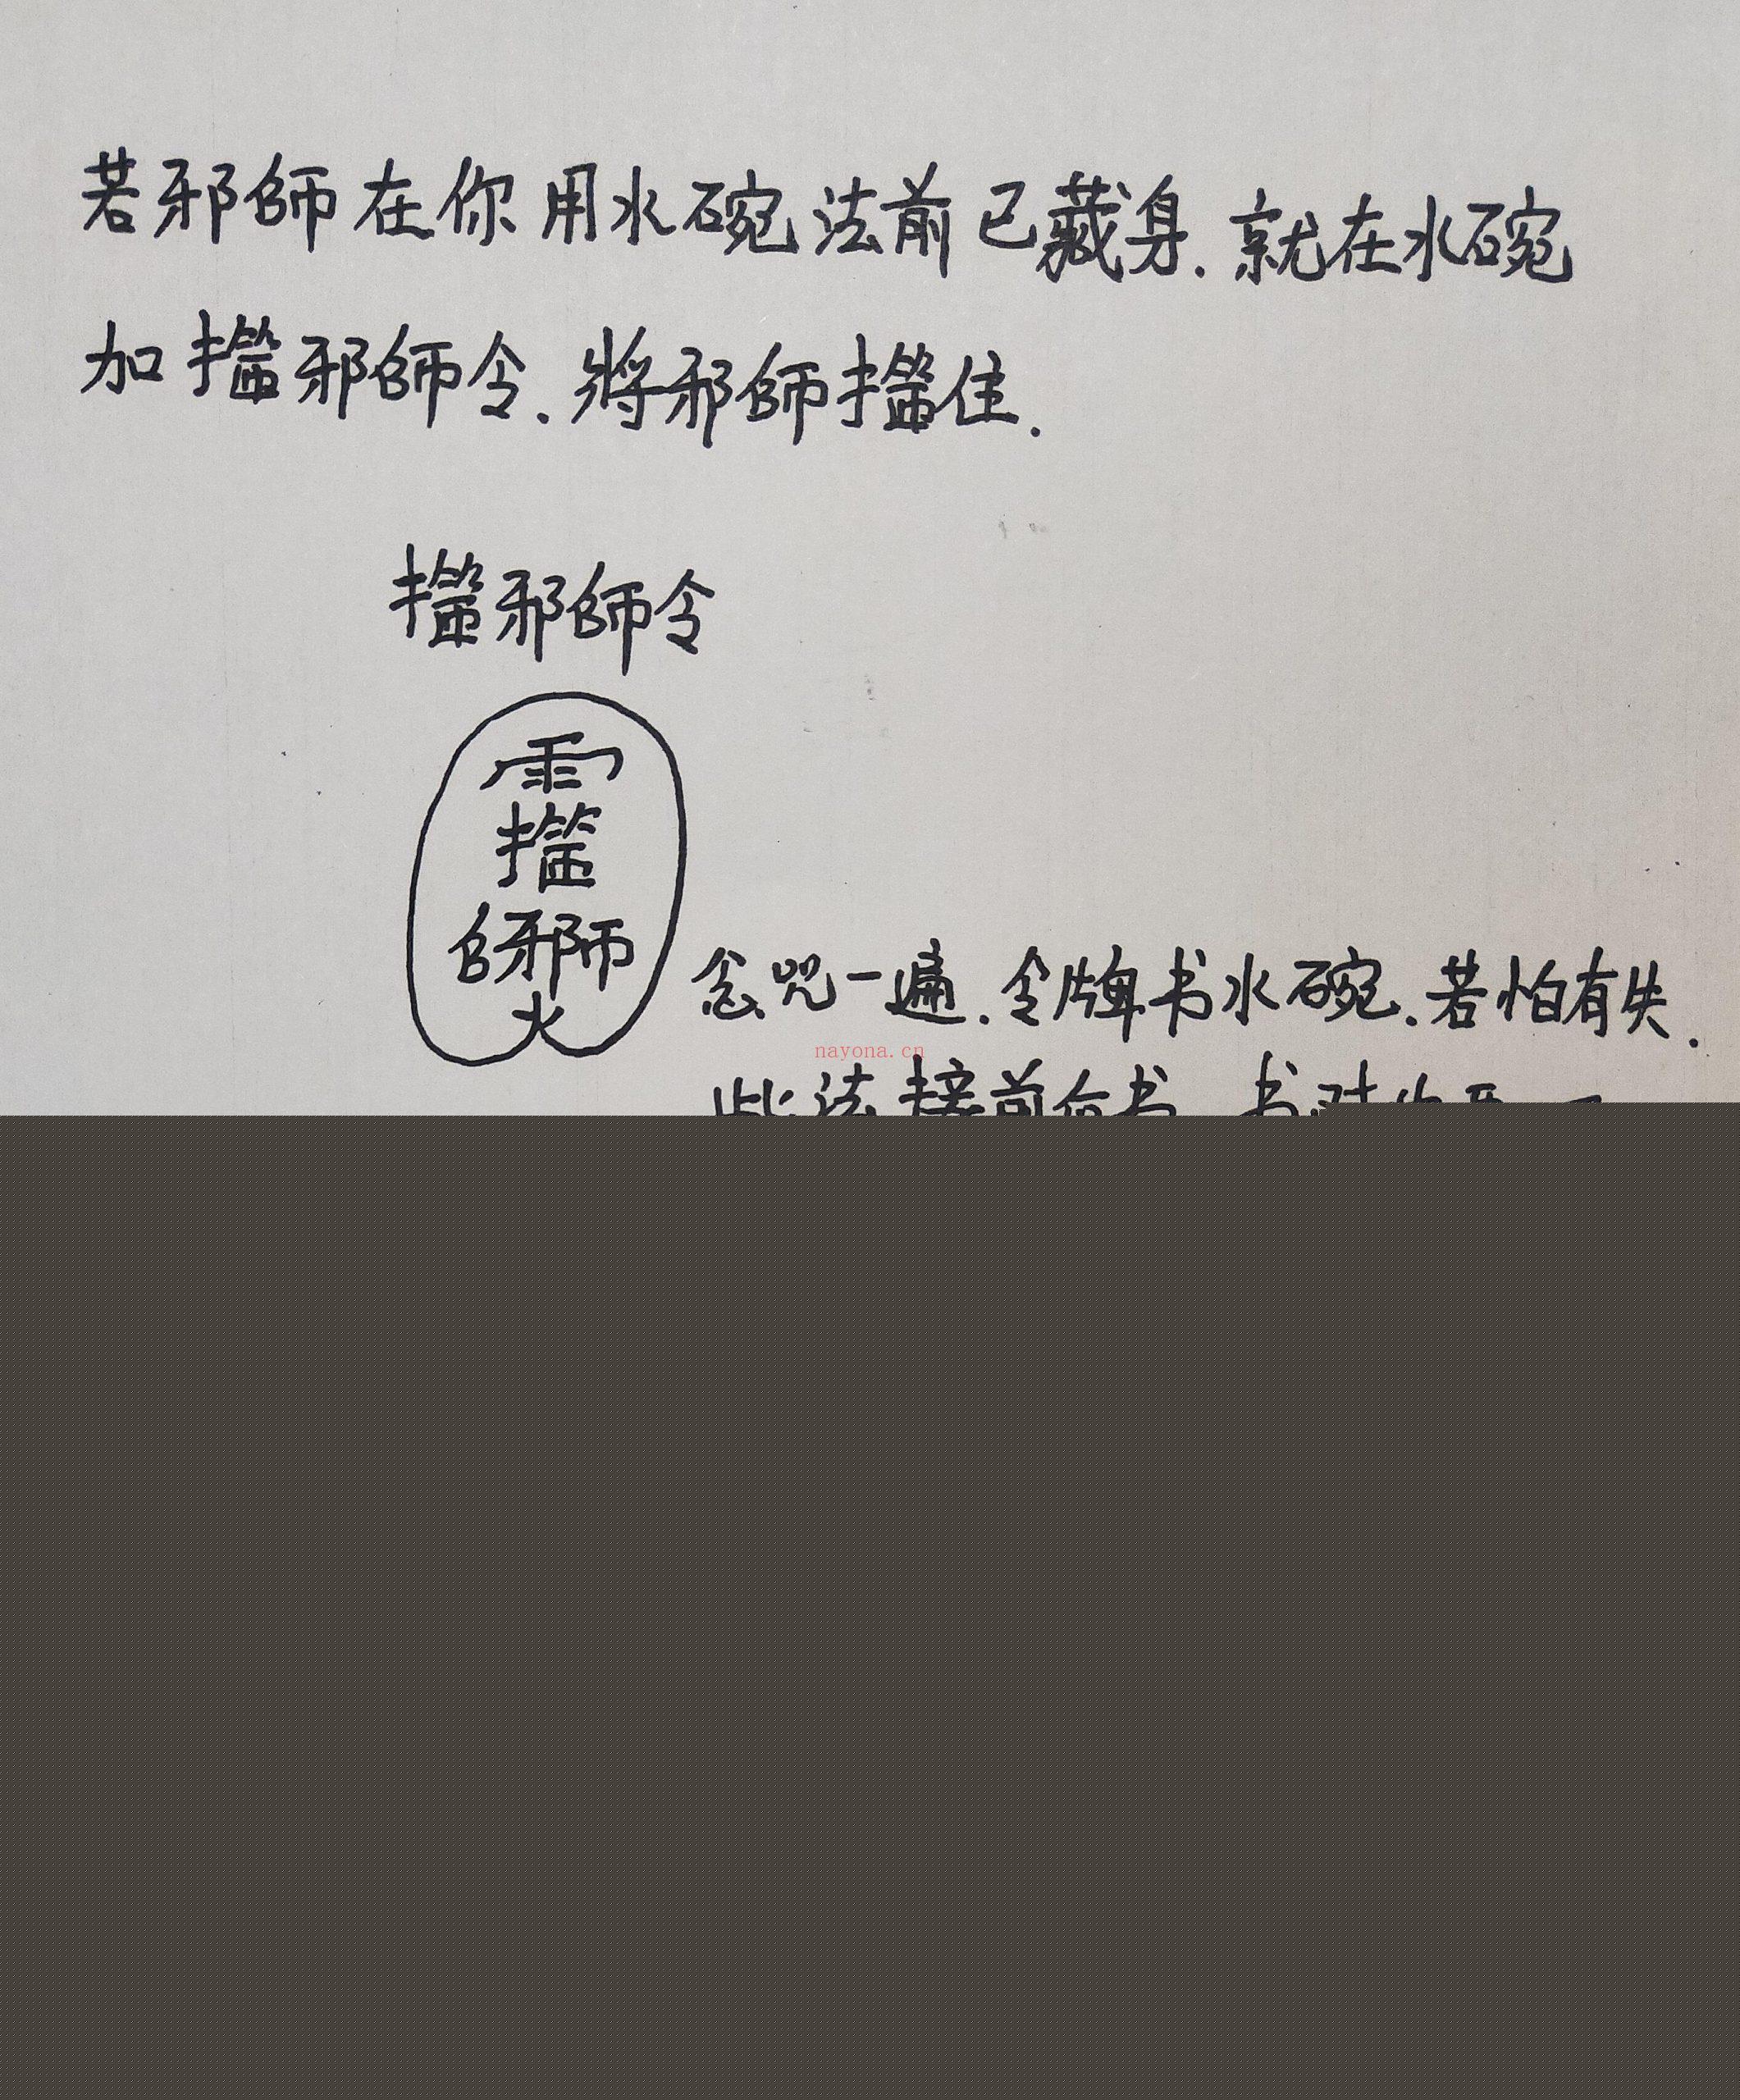 若邪師在你用水碗法前已藏身.就在水碗
加邪師令.將邪師住.
邪師令
火
念咒一遍.令牌书水碗.若怕有失.
nayona.cn
此法接前